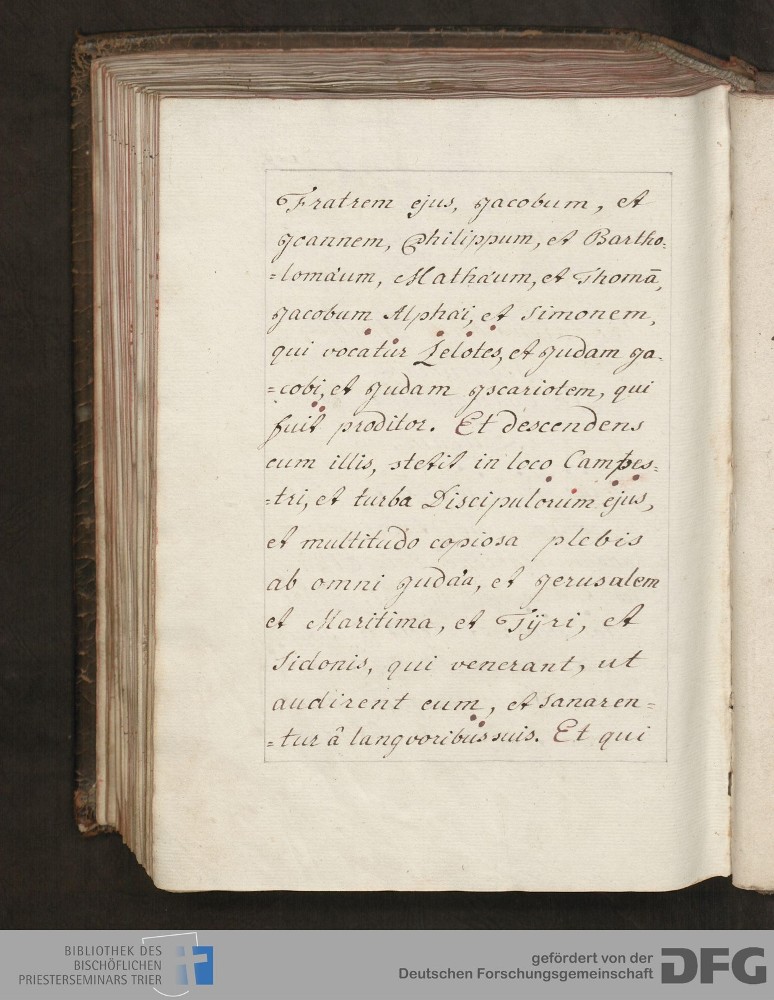 Fratrem ejus, Jacobum, et
Joannem, Philippum, et Bartho-
-lomæum, Mathæum, et Thomā,
Jacobum Alphæi, et Simonem,
qui vocatur Zelotes, et Judam Ja-
-cobi, et Judam Iscariotem, qui
fuit proditor. Et descendens
cum illis, stetit in loco Campes-
-tri, et turba Discipulorum ejus,
et multitudo copiosa plebis
ab omni Judæa, et Jerusalem
et Maritima, et Tÿri, et
Sidonis, qui venerant, ut
audirent eum, et sanaren-
-tur â langvoribus suis. Et qui
BIBLIOTHEK DES
BISCHÖFLICHEN
PRIESTERSEMINARS TRIER
gefördert von der
Deutschen Forschungsgemeinschaft
DFG